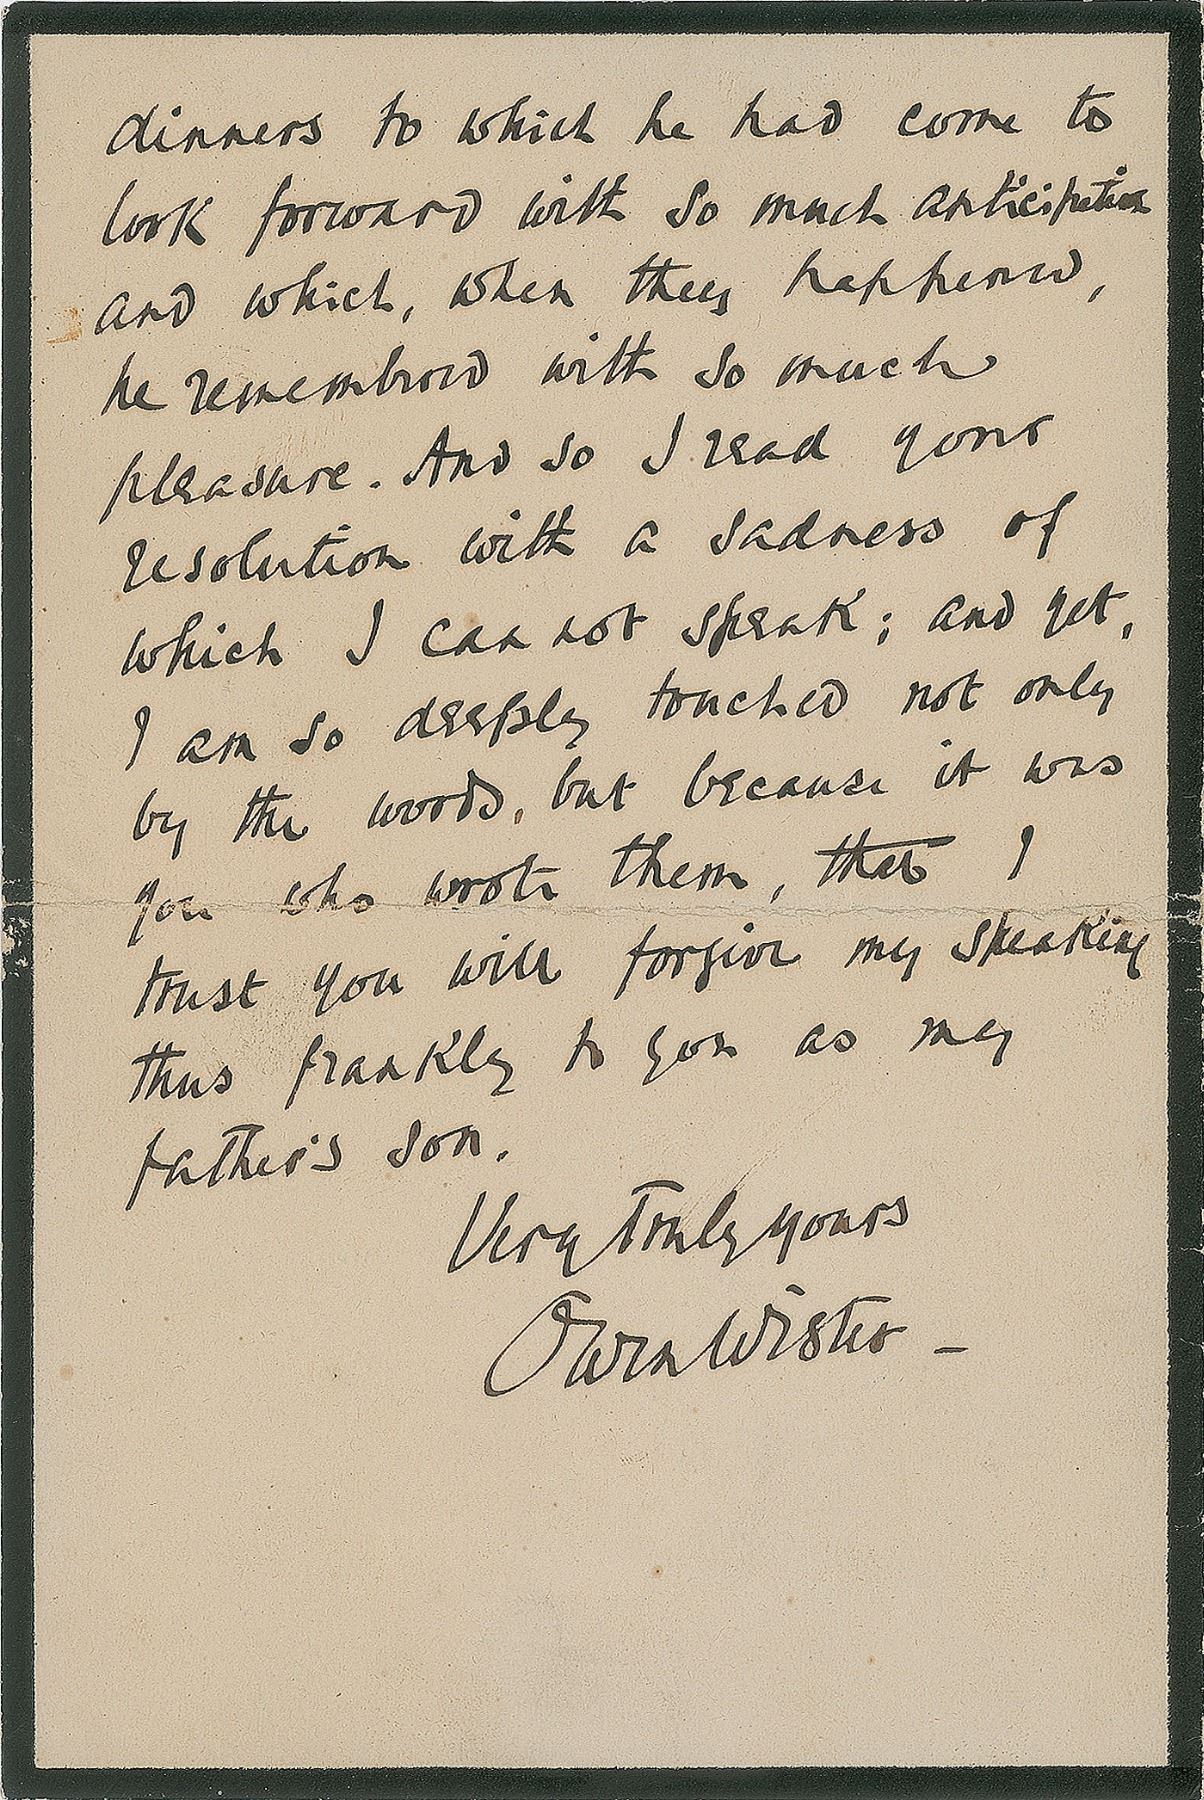 dinners to which he had come to
look forward with so much anticipation
and which, when they happened,
he remembered with so much
pleasure. And so I read your
resolution with a sadness of
which I can not speak; and yet,
I am so deeply touched not only
by the words, but because it was
you who wrote them, that I
trust you will forgive my speaking
thus frankly to you as my
father's son.
Very truly yours
Owen Wister –